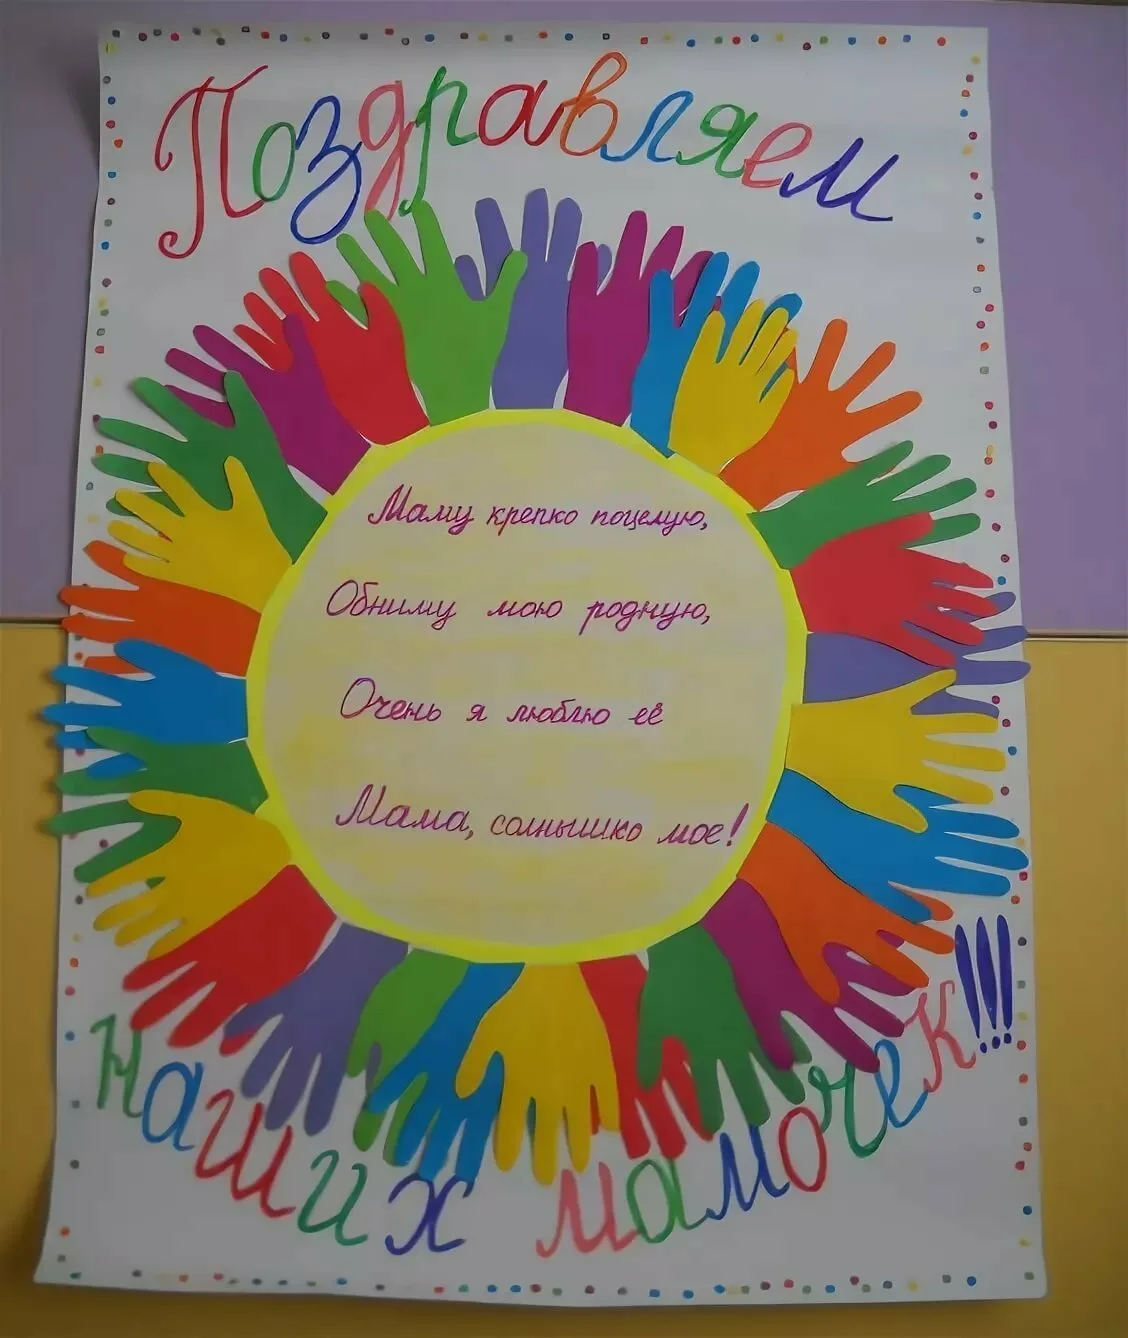 Поздравляем
Маму крепко поцелую,
Обниму мою родную,
Очень я люблю её
Мама, солнышко мое!
наших мамочек!!!